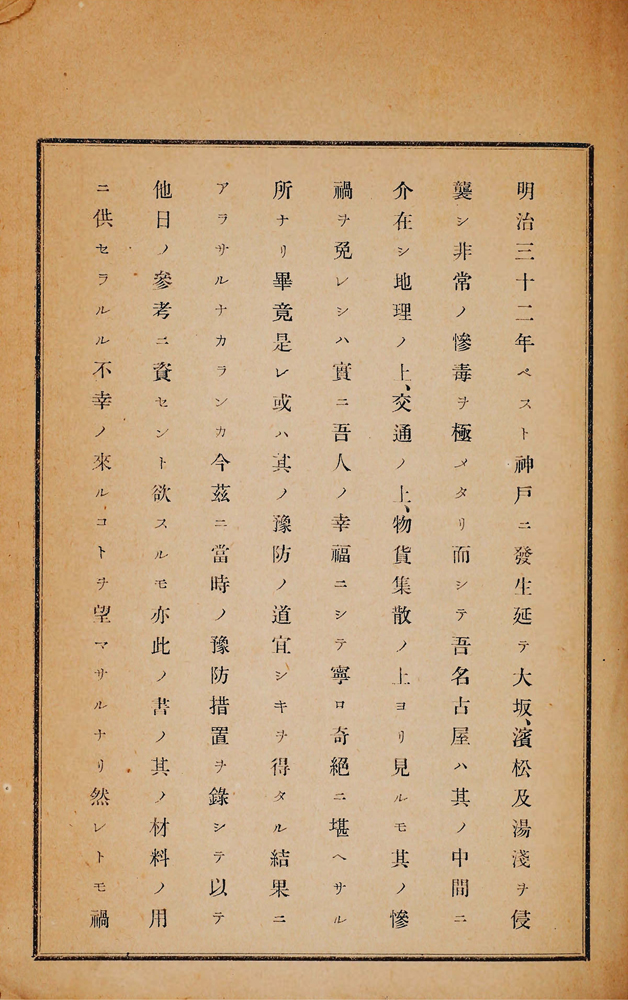 明治三十二年ペスト神戸ニ發生延テ大坂、濱松及湯淺ヲ侵
襲シ非常ノ慘毒ヲ極メタリ而シテ吾名古屋ハ其ノ中間ニ
介在シ地理ノ上、交通ノ上、物貨集散ノ上ヨリ見ルモ其ノ慘
禍ヲ免レシハ實ニ吾人ノ幸福ニシテ寧ロ奇絕ニ堪ヘサル
所ナリ畢竟是レ或ハ其ノ豫防ノ道宜シキヲ得タル結果ニ
アラサルナカランカ今茲ニ當時ノ豫防措置ヲ錄シテ以テ
他日ノ參考ニ資セント欲スルモ亦此ノ書ノ其ノ材料ノ用
ニ供セラルル不幸ノ來ルコトヲ望マサルナリ然レトモ禍